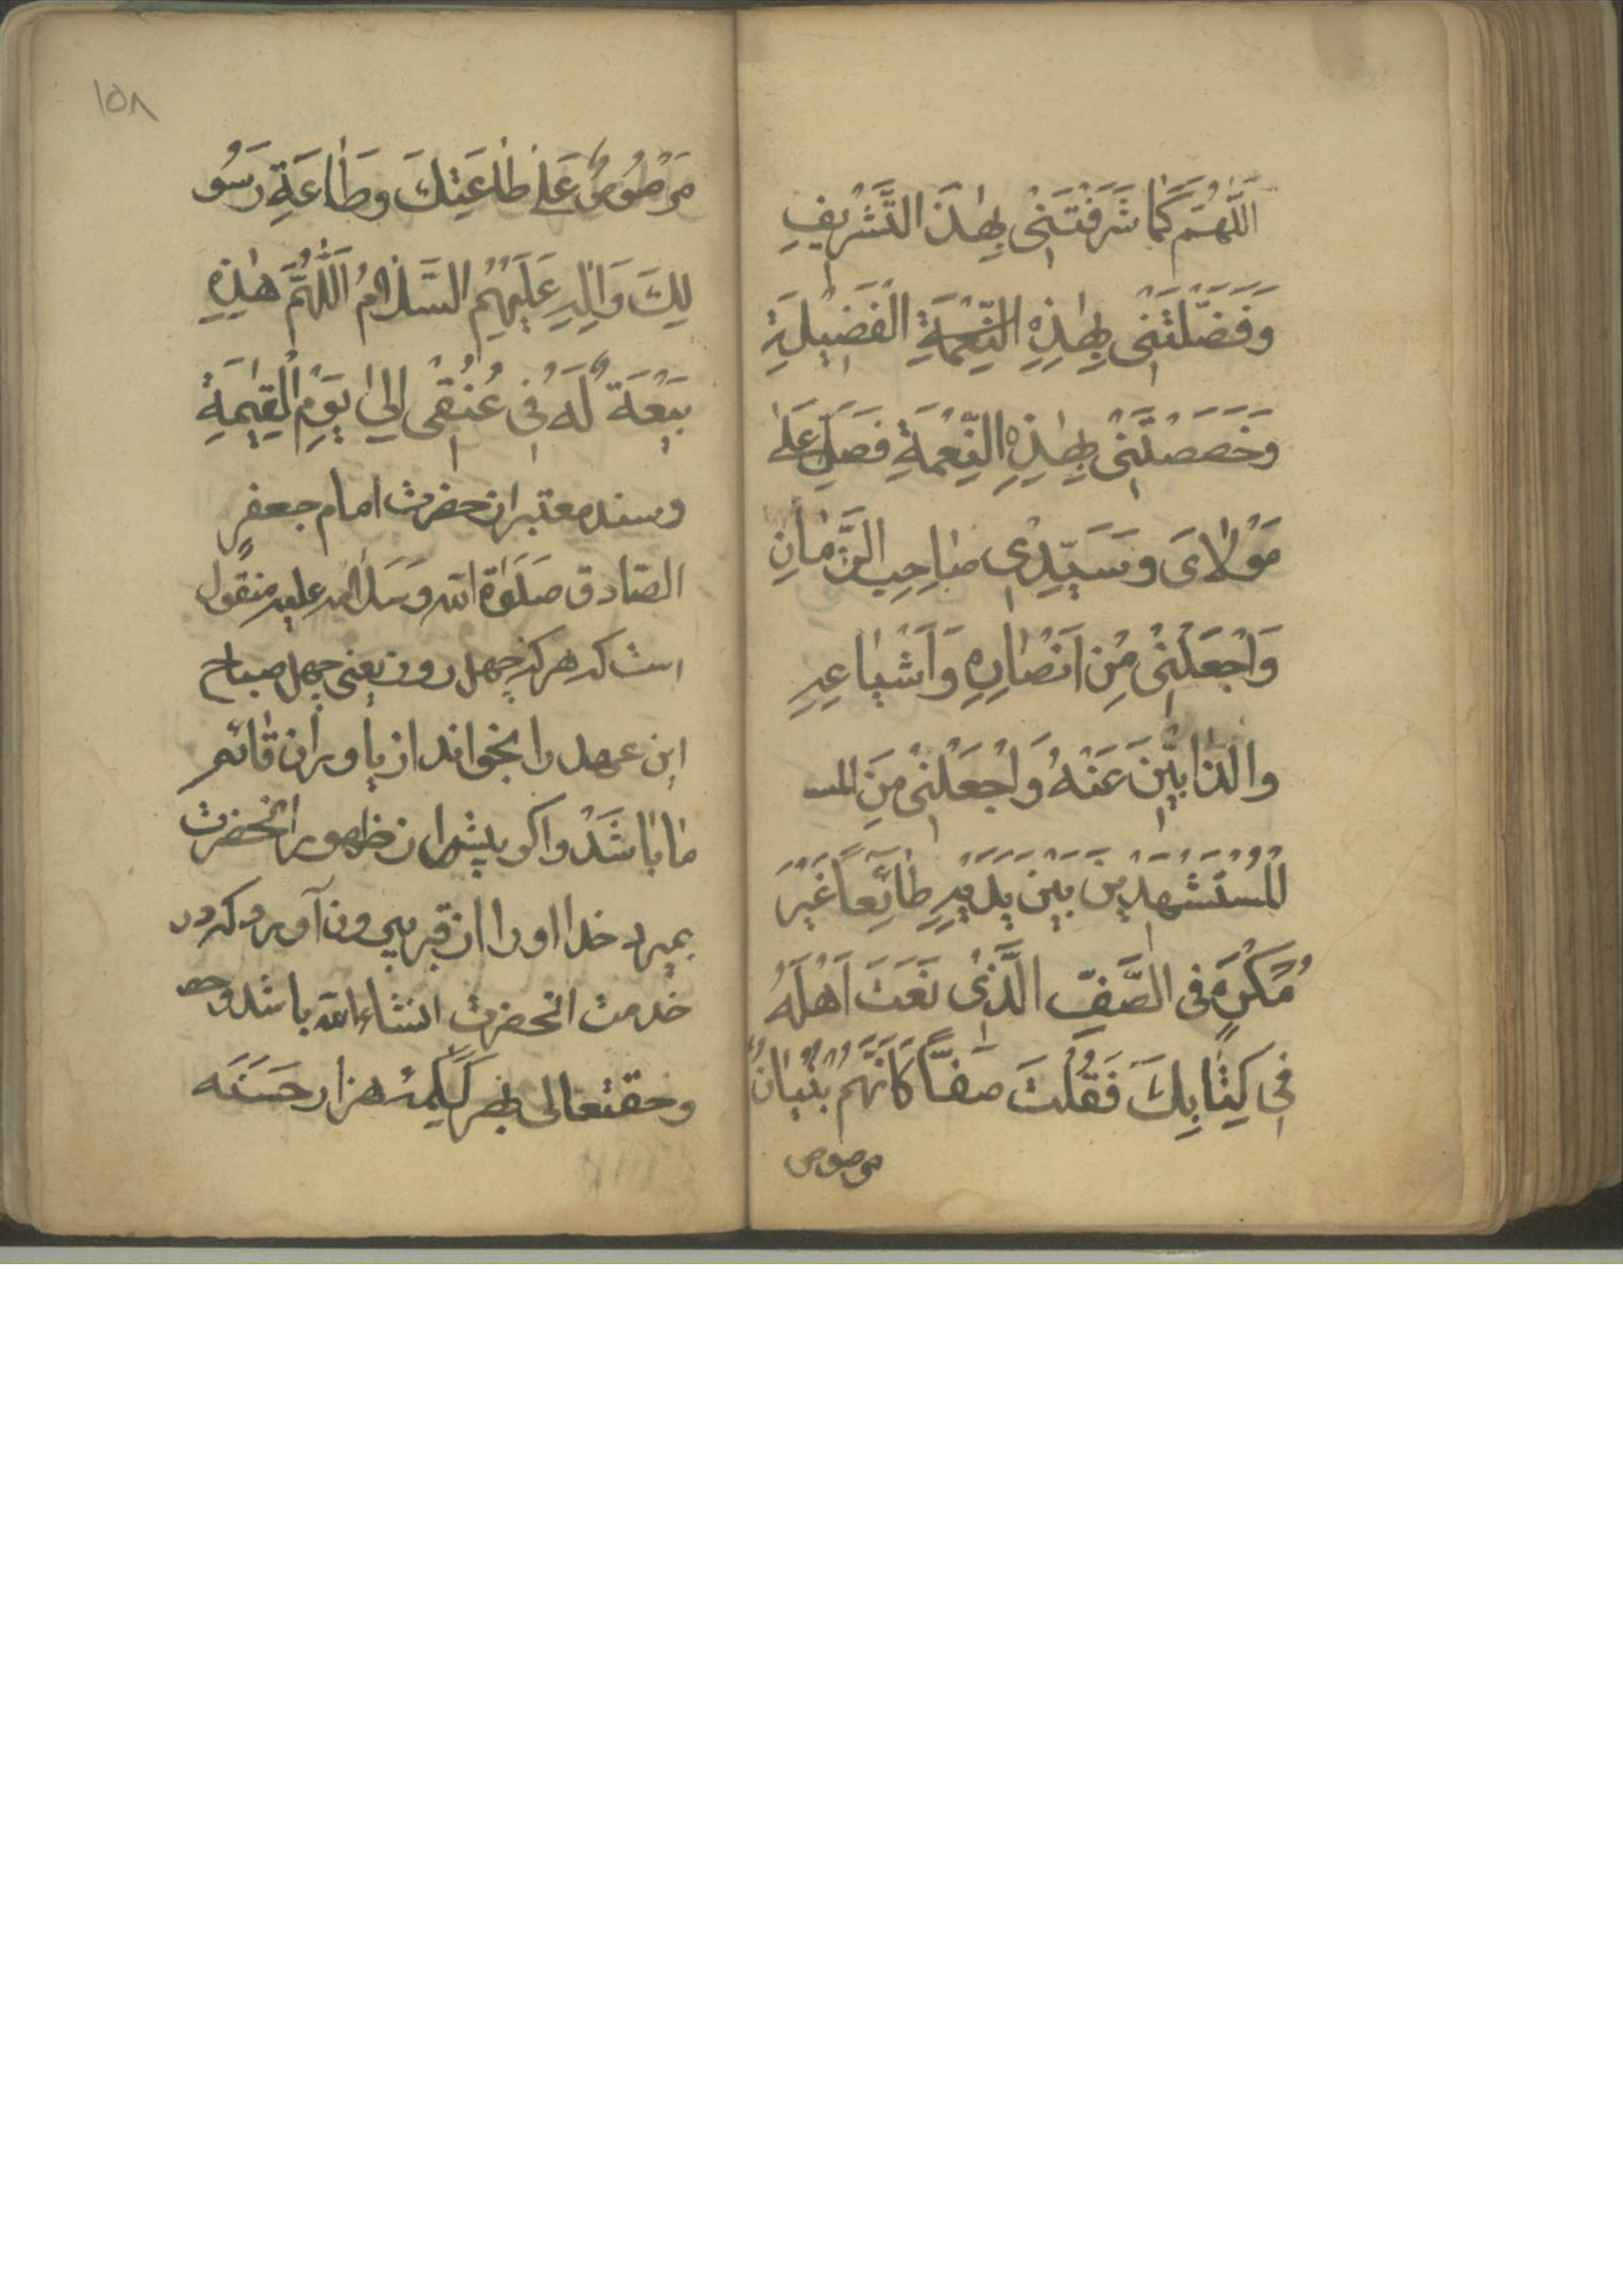 اَللّٰهُمَّ كَمٰا شَرَّفْتَنىٖ بِهٰذَ التَّشْرٖيفِ
وَفَضَّلْتَنىٖ بِهٰذِهِ النِّعْمَةِ الْفَضٖيلَةِ
وَخَصَصْتَنىٖ بِهٰذِهِ النِّعْمَةِ فَصَلِّ عَلىٰ
مَوْلاٰىَ وَسَيِّدٖى صٰاحِبِ الزَّمٰانِ
وَاجْعَلْنىٖ مِنْ اَنْصٰارِهِ وَاَشْيٰاعِهِ
والذّٰابّٖينَ عَنْهُ وَاجْعَلْنىٖ مِنَ المـ
الْمُسْتَشْهَدٖينَ بَيْنَ يَدَيْهِ طٰائِعاً غَيْرَ
مُكْرَهٍ فى الصَّفِّ الَّذىٖ نَعَتَ اَهْلَهُ
فىٖ كِتٰابِكَ فَقُلْتَ صَفّاً كَاَنَّهُمْ بُنْيٰانٌ
مرصوص
١٥٨
مَرْصُوصٌ عَلىٰ طٰاعَتِكَ وَطٰاعَةِ رَسُو
لِكَ وَاٰلِهِ عَلَيْهِمُ السَّلاٰمُ اَللّٰهُمَّ هٰذِهِ
بَيْعَةٌ لَهُ فىٖ عُنُقىٖ اِلىٰ يَوْمِ الْقِيٰمَةِ
وسند معتبر از حضرت امام جعفر
الصّادق صَلَوٰةُ الله وَسَلٰامه عليه منقول
است كه هر كه چهل روز يعنى چهل صباح
اين عهد را بخواند از ياوران قائم
مٰا بٰاشَدْ واكر پيش از ظهور انحضرت
بميرد خدا او را از قبر بيرون آورد كه در
خدمت انحضرت انشاءالله باشد و
وحقتعالى بهر كَلِمه هزار حَسَنَه